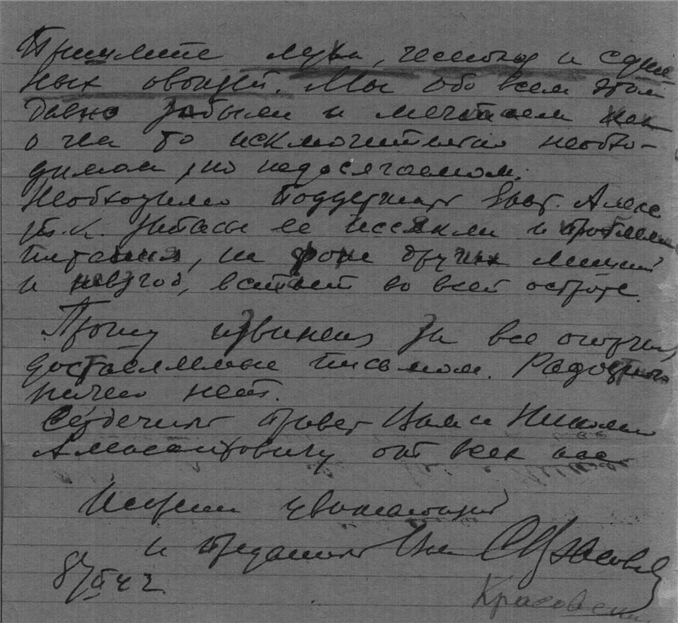 Пришлите луку, чесноку и сушё
ных овощей. Мы обо всем этом
давно забыли и мечтаем как
о чем то исключительно необхо-
димом, но недосягаемом.
Необходимо поддержать Алекс
т.к. запасы ее иссякли и проблема
питания, на фоне других лишений
и невзгод, встает во всей остроте.
Прошу извинения за все огорчения,
доставляемые письмом. Радостного
ничего нет.
Сердечный привет Вам и Николаю
от всех нас
Искренно уважающий
и преданный Вам
8/II 42.
Красовский